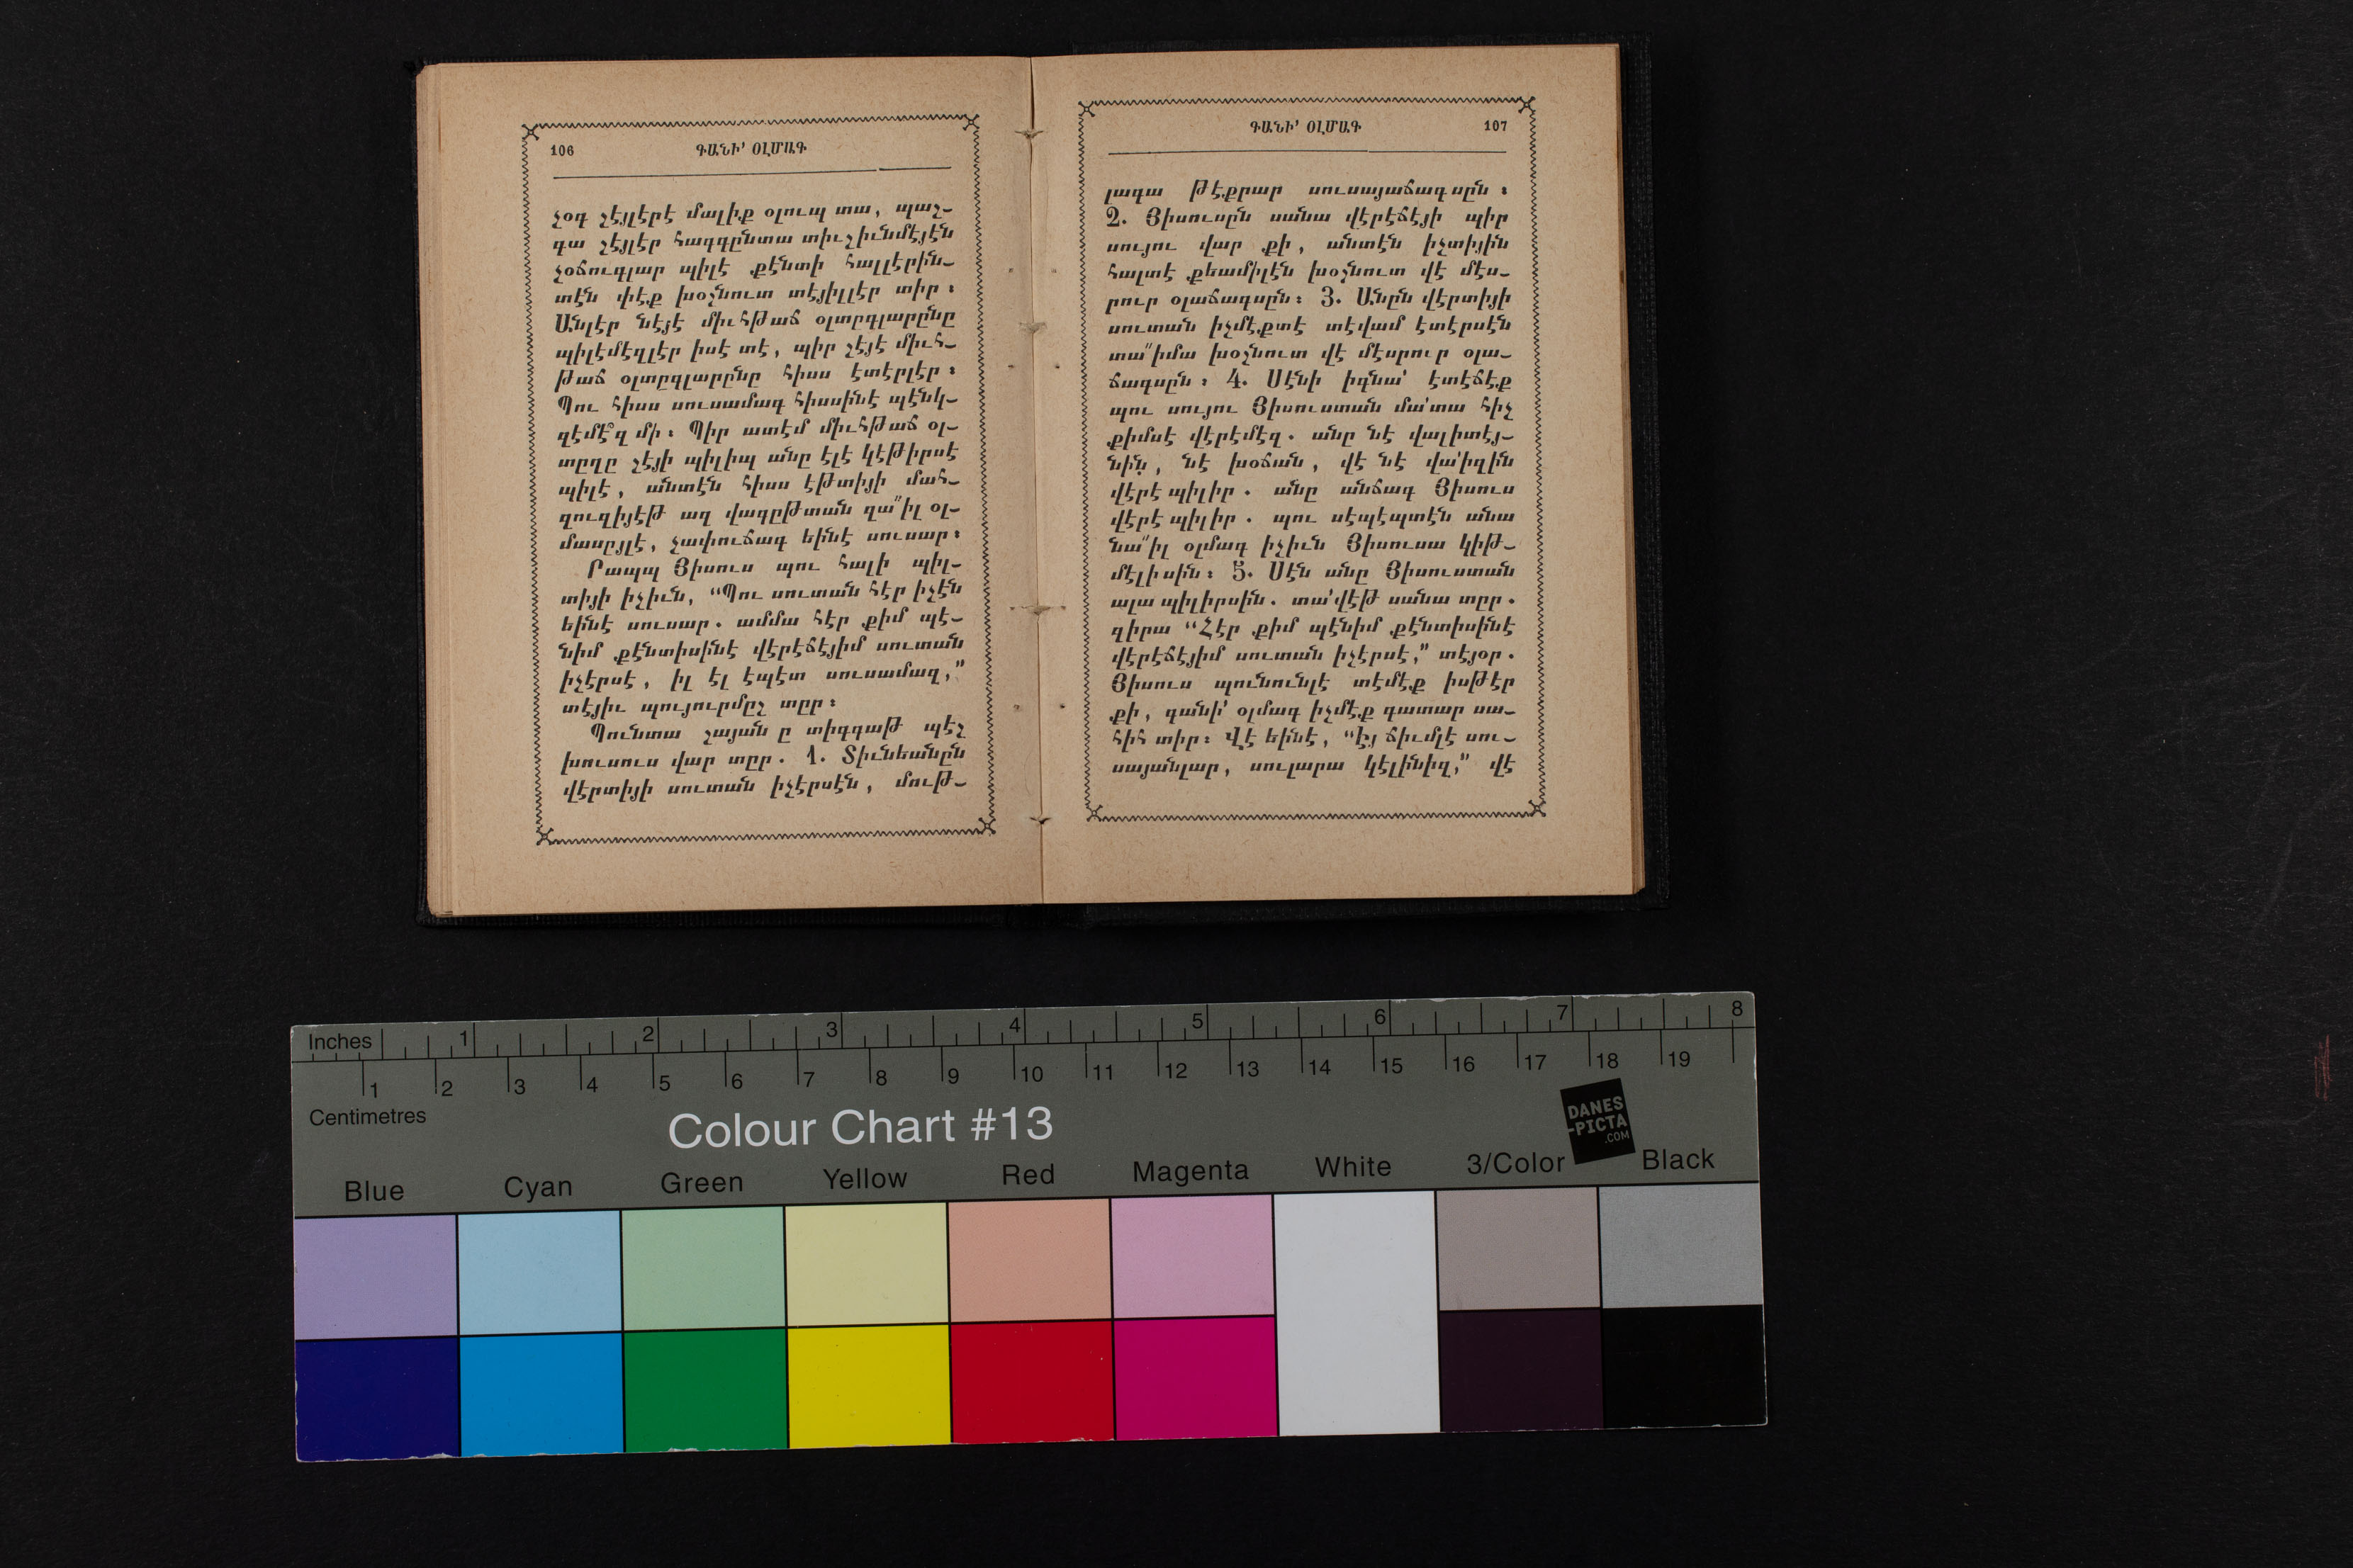 106 ԳԱՆԻ՚ ՕԼՄԱԳ
չօգ շէյլէրէ մալիք օլուպ տա, պաշ-
գա շէյլէր հագգընտա տիւշիւնմէյէն
չօճուգլար պիլէ քէնտի հալլէրին-
տէն փէք խօշնուտ տէյիլլէր տիր։
Անլէր նէյէ միւհթաճ օլտըգլարընը
պիլէմէզլէր իսէ տէ, պիր շէյէ միւհ-
թաճ օլտըգլարընը հիսս էտէրլէր։
Պու հիսս սուսամագ հիսսինէ պէնկ-
զէմէ՞զ մի։ Պիր ատէմ միւհթաճ օլ-
տըղը շէյի պիլիպ անը էլէ կէթիրսէ
պիլէ, անտէն հիսս էթտիյի մահ-
զուզիյէթ ազ վագըթտան զա՛՛իլ օլ-
մասըյլէ, չափուճագ եինէ սուսար։
Րապպ Յիսուս պու հալի պիլ-
տիյի իչիւն, “Պու սուտան հէր իչէն
եինէ սուսար. ամմա հէր քիմ պէ-
նիմ քէնտիսինէ վէրէճէյիմ սուտան
իչէրսէ, իլ էլ էպէտ սուսամազ,”
տէյիւ պույուրմըշ տըր։
Պունտա շայան ը տիգգաթ պէշ
խուսուս վար տըր. 1. Տիւնեանըն
վէրտիյի սուտան իչէրսէն, մութ-
ԳԱՆԻ՚ ՕԼՄԱԳ 107
լագա թէքրար սուսայաճագսըն։
2. Յիսուսըն սանա վէրէճէյի պիր
սույու վար քի, անտէն իչտիյին
հալտէ քեամիլէն խօշնուտ վէ մէս-
րուր օլաճագսըն։ 3. Անըն վէրտիյի
սուտան իչմէքտէ տէվամ էտէրսէն
տա՛՛իմա խօշնուտ վէ մէսրուր օլա-
ճագսըն։ 4. Սէնի իգնա՛ էտէճէք
պու սույու Յիսուստան մա՛տա հիչ
քիմսէ վէրէմէզ. անը նէ վալիտէյ-
նին, նէ խօճան, վէ նէ վա՛իզին
վէրէպիլիր. անը անճագ Յիսուս
վէրէպիլիր. պու սէպէպտէն անա
նա՛՛իլ օլմագ իչիւն Յիսուսա կիթ-
մէլիսին։ 5. Սէն անը Յիսուստան
ալապիլիրսին. տա՛վէթ սանա տըր.
զիրա “Հէր քիմ պէնիմ քէնտիսինէ
վէրէճէյիմ սուտան իչէրսէ,” տէյօր.
Յիսուս պունունլէ տէմէք իսթէր
քի, գանի՛ օլմագ իչմէք գատար սա-
հիհ տիր։ Վէ եինէ, “էյ ճիւմլէ սու-
սայանլար, սուլարա կէլինիզ,” վէ
Inches 1 2 3 4 5 6 7 8
1 2 3 4 5 6 7 8 9 10 11 12 13 14 15 16 17 18 19
Centimetres
Colour Chart #13
DANES
-PICTA
.COM
Blue Cyan Green Yellow Red Magenta White 3/Color Black